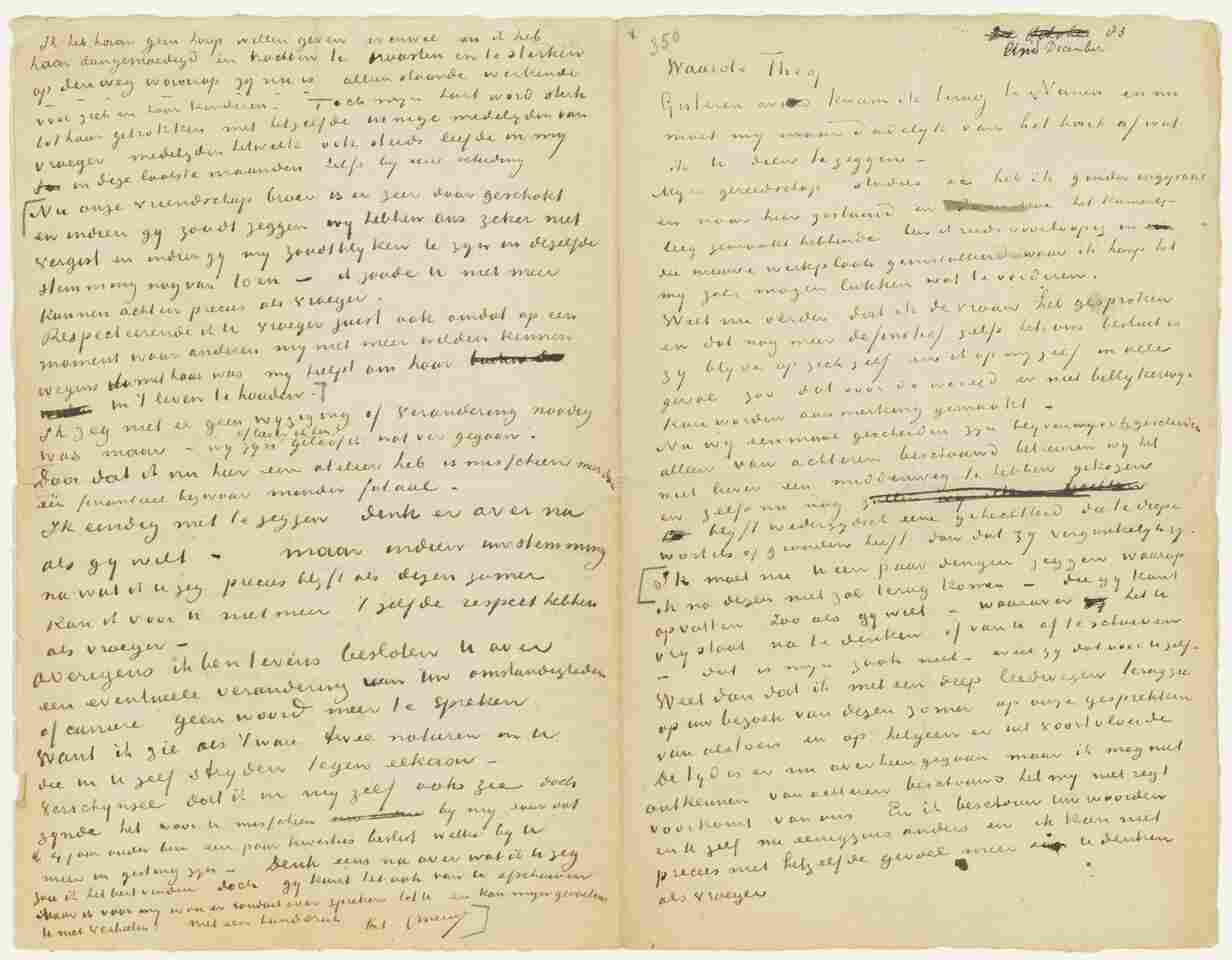 Ik heb haar geen hoop willen geven evenwel en ik heb
haar aangemoedigd en trachten te troosten en te sterken
op den weg waarop zy nu is alleen staande werkende
voor zich en haar kinderen. Toch myn hart word sterk
tot haar getrokken met hetzelfde innige medelyden van
vroeger medelyden hetwelk ook steeds leefde in my
in deze laatste maanden zelfs by onze scheiding
Nu onze vriendschap broer is er zeer door geschokt
en indien gy zoudt zeggen wy hebben ons zeker niet
vergist en indien gy my zoudt blyken te zyn in dezelfde
stemming nog van toen – ik zoude u niet meer
kunnen achten precies als vroeger.
Respecteerende ik u vroeger juist ook omdat op een
moment waar anderen my niet meer wilden kennen
wegens myn met haar was my hielpt om haar
in 't leven te houden.
Ik zeg niet er geen wyziging of verandering noodig
of beter schikken?
was maar – wy zyn geloof ik wat ver gegaan.
Door dat ik nu hier een atelier heb is misschien
één financieel bezwaar minder fataal. –
Ik eindig met te zeggen denk er over na
als gy wilt – maar indien uw stemming
na wat ik u zeg precies blyft als dezen zomer
kan ik voor u niet meer 't zelfde respect hebben
als vroeger –
Overigens ik ben tevens besloten u over
een eventueele verandering van uw omstandigheden
of carriere geen woord meer te spreken
want ik zie als 't ware twee naturen in u
die in u zelf stryden tegen elkaar –
verschynsel dat ik in my zelf ook zie doch
zynde het voor u misschien by my daar ik
4 jaar ouder ben een paar kwesties beslist welke by u
meer in gisting zyn – Denk eens na over wat ik u zeg
zou ik het best vinden doch gy kunt het ook van u afschuiven
maar ik voor my wou er ronduit over spreken tot u en kan myn gevoelens
u niet verhelen. Met een handdruk t.à.t. Vincent
350
83
Eind December
Waarde Theo
Gisteren avond kwam ik terug te Nunen en nu
moet my maar dadelyk van het hart af wat
ik te dien te zeggen –
Myn gereedschap studies enz heb ik ginder ingepakt
en naar hier gestuurd en het kamertje
leeg gemaakt hebbende ben ik reeds voorloopig in
die nieuwe werkplaats geinstalleerd waar ik hoop het
my zal mogen lukken wat te vorderen.
Weet nu verder dat ik de vrouw heb gesproken
en dat nog meer definitief zelfs het ons besluit is
zy blyve op zich zelf en ik op my zelf in alle
geval zoo dat voor de wereld er niet bellykerwys
kan worden aanmerking gemaakt –
Nu wy eenmaal gescheiden zyn blyven wy ook gescheiden
alleen van achteren beschouwd betreuren wy het
niet liever een middenweg te hebben gekozen
en zelfs nu nog
blyft wederzydsch eene gehechtheid die te diepe
wortels of gronden heeft dan dat zy vergankelyk zy.
Ik moet nu u een paar dingen zeggen waarop
ik na dezen niet zal terug komen – die gy kunt
opvatten zoo als gy wilt – waarover het u
vry staat na te denken of van u af te schuiven
– dat is myn zaak niet – weet gy dat voor u zelf.
Weet dan dat ik met een diep leedwezen terugzie
op uw bezoek van dezen zomer op onze gesprekken
van alstoen en op hetgeen er uit voortvloeide
De tyd is er nu overheen gegaan maar ik mag niet
ontkennen van achteren beschouwd het my niet regt
voorkomt van ons En ik beschouw uw woorden
en u zelf nu eenigzins anders en ik kan niet
precies met hetzelfde gevoel meer u denken
als vroeger